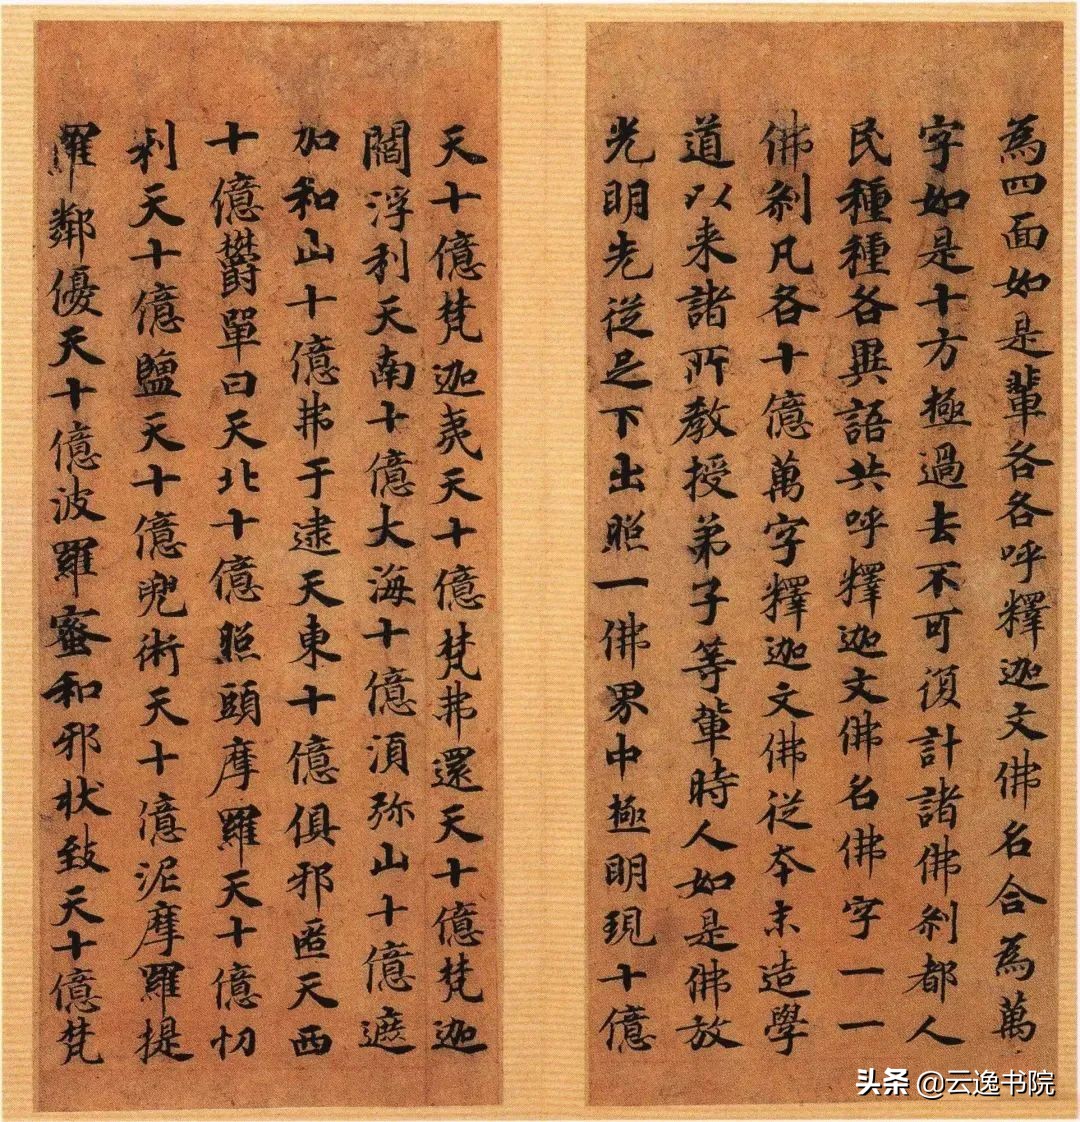 為四面如是輩各各呼釋迦文佛名合為萬
字如是十方極過去不可復計諸佛剎都人
民種種各異語共呼釋迦文佛名佛字一一
佛剎凡各十億萬字釋迦文佛從本末造學
道以来諸所教授弟子等輩時人如是佛放
光明先從足下出照一佛界中極明現十億
天十億梵迦夷天十億梵弗還天十億梵迦
閻浮利天南十億大海十億須弥山十億遮
加和山十億弗于逮天東十億俱邪匿天西
十億欝單曰天北十億照頭摩羅天十億忉
利天十億鹽天十億兜術天十億泥摩羅提
羅鄰優天十億波羅蜜和邪状致天十億梵
头条 @云逸书院